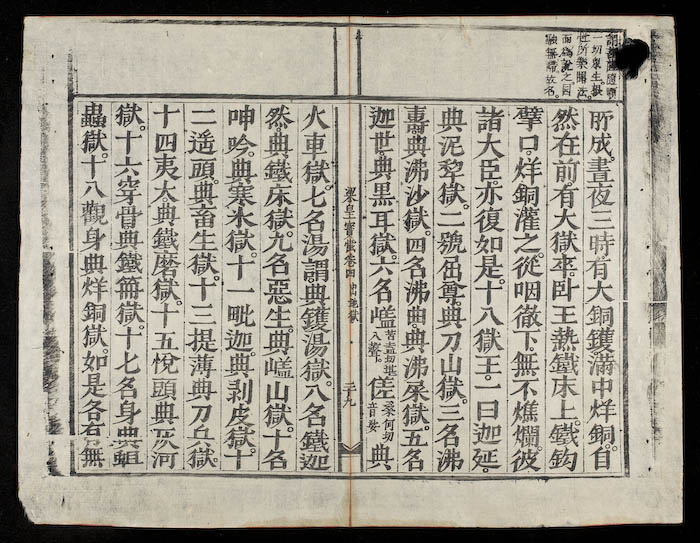 一切眾生
性所樂聞法
而為說之圓
融無礙故名
所成。晝夜三時。有大銅鑊滿中烊銅。自
然在前。有大獄卒。臥王熱鐵床上。鐵鈎
擘口。烊銅灌之。從咽徹下。無不燋爛。彼
諸大臣。亦復如是。十八獄王。一曰迦延。
典泥犂獄。二號屈尊。典刀山獄。三名沸
壽。典沸沙獄。四名沸曲。典沸屎獄。五名
迦世。典黑耳獄。六名入聲傞桑何切音娑典
梁皇寶懺卷四 二十九
火車獄。七名湯謂。典鑊湯獄。八名鐵迦
然。典鐵床獄。九名惡生。典山獄。十名
呻吟。典寒氷獄。十一毗迦。典剥皮獄。十
二遥頭。典畜生獄。十三提薄。典刀兵獄。
十四夷大。典鐵磨獄。十五悅頭。典灰河
獄。十六穿骨。典鐵箭獄。十七名身。典蛆
蟲獄。十八觀身。典烊銅獄。如是各有無